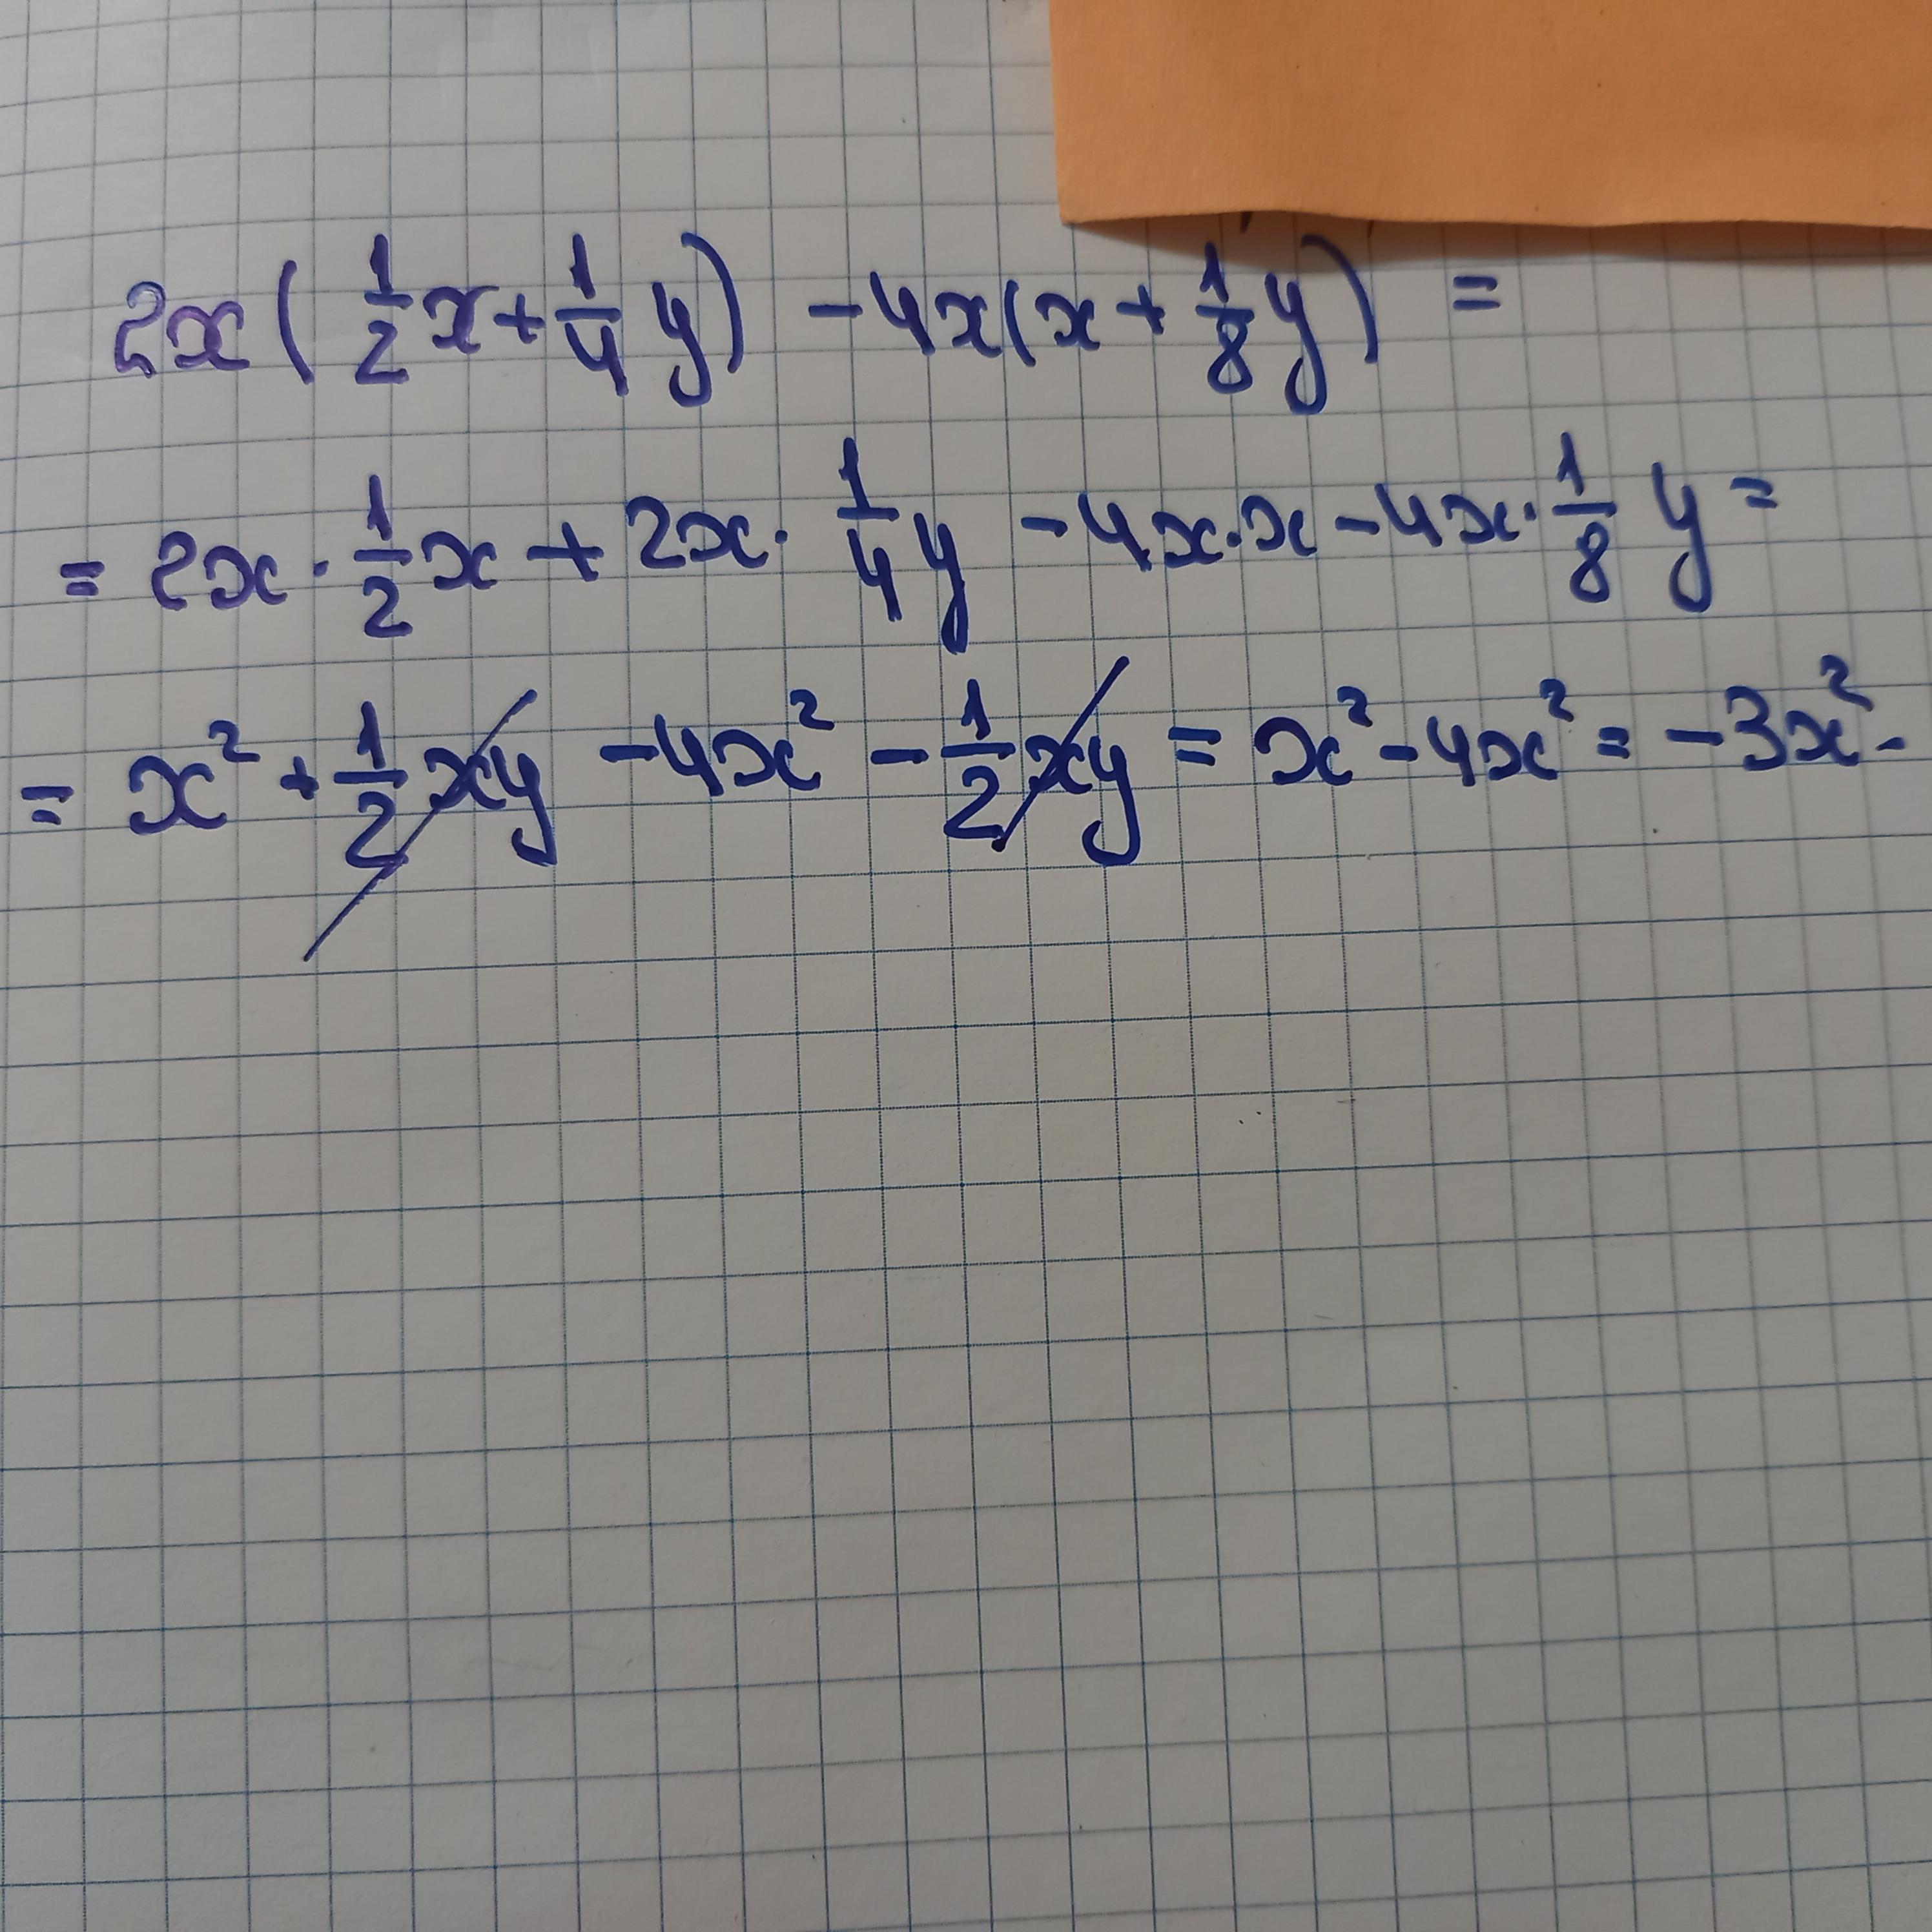 2x(1/2x+1/4y) -4x(x+1/8y) =
= 2x·1/2x + 2x·1/4y - 4x·x - 4x·1/8y =
= x² + 1/2xy - 4x² - 1/2xy = x² - 4x² = -3x².